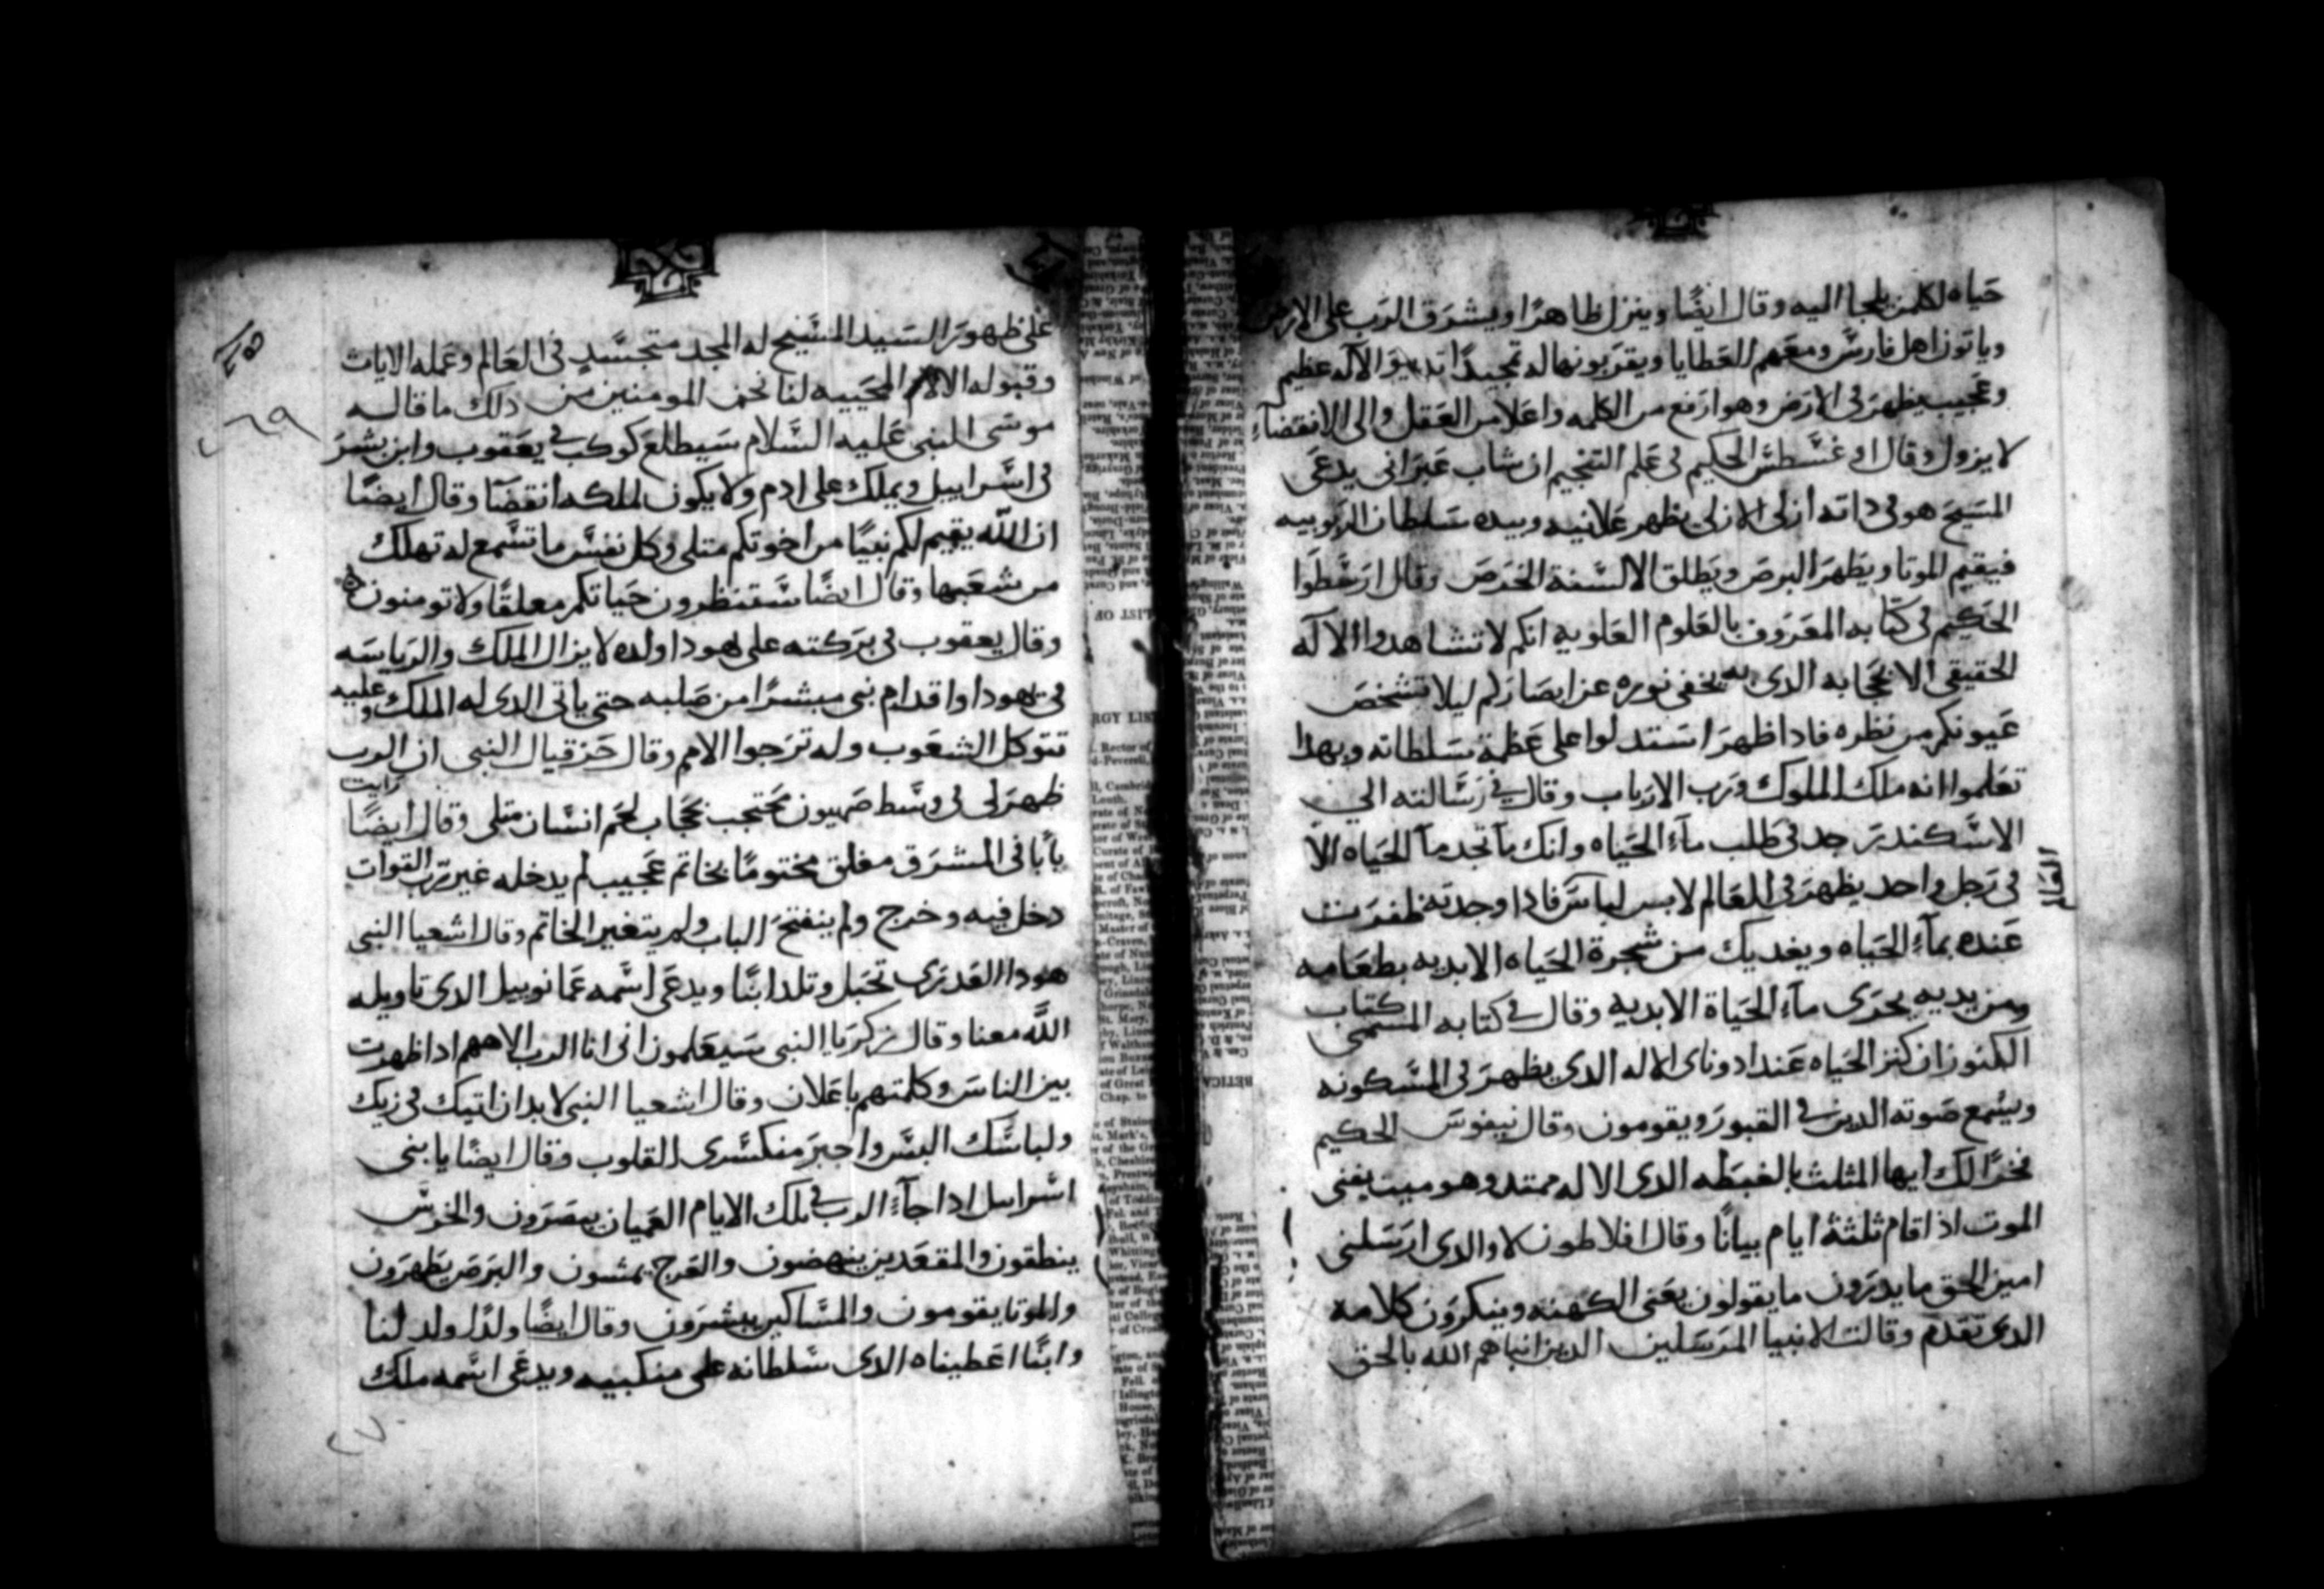 حياه لكلمن يلجا اليه وقال ايضًا وينزل ظاهرًا ويشرق الرب على الارض
وياتون اهل فارس ومعهم العطايا ويقربونها له تمجيدًا الآله عظيم
وعجيب يظهر فى الارض وهو ارفع من الكلمه واعلا من العقل والى الانقضآء
لا يزول وقال اوغسطس الحكيم فى علم التنجيم ان شاب عبرانى يدعى
المسيح هو فى داته ازلى الازلى يظهر علانيه وبيده سلطان الربوبيه
فيقيم الموتا ويطهر البرص ويطلق الالسنة الخرص وقال ارسطوا
الحكيم فى كتابه المعروف بالعلوم العلويه انكم لا تشاهدوا الآله
الحقيقى الا بحجابه الدى به يخفى نوره عن ابصاركم ليلا تشخص
عيونكم من نظره فادا ظهر استدلوا على عظمة سلطانه وبهدا
تعلموا انه ملك الملوك ورب الارباب وقال فى رسالته الى
الاسكندر جد فى طلب مآء الحياه وانك ما تجد مآ الحياه الا
فى رجل واحد يظهر فى العالم لابس لباس فادا وجدته ظفرت
العالم
عنده بمآء الحياه ويغديك من شجرة الحياه الابديه بطعامه
ومن يديه يجرى مآء الحياة الابديه وقال فى كتابه المسمى كتاب
الكنوز ان كنز الحياه عند ادوناى الاله الدى يظهر فى المسكونه
ويسمع صوته الدين فى القبور ويقومون وقال نيفوس الحكيم
فخرًا لك ايها المثلث بالغبطه الدى الاله ممتد وهو ميت يفنى
الموت اذا قام ثلثة ايام بيانًا وقال افلاطون لا والدى ارسلنى
امين الحق ما يدرون ما يقولون يعنى الكهنه وينكرون كلامه
الدى تقدم وقالت الانبيا المرسلين الدين انباهم الله بالحق
على ظهور السيد المسيح له المجد متجسدٍ فى العالم وعمله الايات
وقبوله الالام المحييه لنا نحن المومنين من دلك ما قاله
موسى النبى عليه السلام سيطلع كوكب فى يعقوب وابن بشر
فى اسراييل ويملك على ادم ولا يكون لملكه انقضآ وقال ايضًا
ان الله يقيم لكم نبيًا من اخوتكم متلى وكل نفس ما تسمع له تهلك
من شعبها وقال ايضًا ستنظرون حياتكم معلقًا ولا تومنون
وقال يعقوب فى بركته على يهودا ولده لا يزال الملك والرياسه
فى يهودا واقدام نبى مبشرًا من صلبه حتى ياتى الدى له الملك وعليه
تتوكل الشعوب وله ترجوا الامم وقال حزقيال النبى ان الرب
ظهر لى فى وسط صهيون محتجب بحجاب لحم انسان متلى وقال ايضًا رايت
بابًا فى المشرق مغلق مختومًا بخاتم عجيب لم يدخله غير رب القوات
دخل فيه وخرج ولم ينفتح الباب ولم يتغير الخاتم وقال اشعيا النبى
هودا العدرى تحبل وتلد ابنًا ويدعى اسمه عمانوييل الدى تاويله
الله معنا وقال زكريا النبى سيعلمون انى انا الرب الاههم ادا ظهرت
بين الناس وكلمتهم باعلان وقال اشعيا النبى لا بد ان اتيك فى زيك
ولباسك البس واجبر منكسرى القلوب وقال ايضًا يا بنى
اسراييل ادا جآء الرب فى تلك الايام العميان يبصرون والخرس
ينطقون والمقعدين ينهضون والعرج يمشون والبرص يطهرون
والموتا يقومون والمساكين يبشرون وقال ايضًا ولدًا ولد لنا
وابنًا اعطيناه الدى سلطانه على منكبيه ويدعى اسمه ملك
٢٦٩
٢٧٠